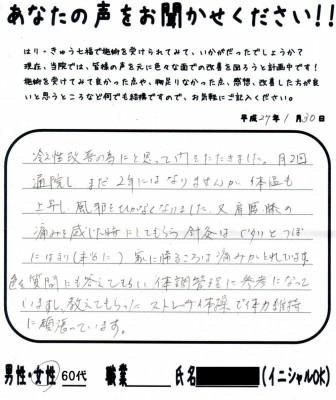 あなたの声をお聞かせください!!
はり・きゅう七福で施術を受けられてみて、いかがだったでしょうか?
現在、当院では、皆様の声を元に色々な面での改善を図ろうと計画中です!
施術を受けてみて良かった点や、物足りなかった点、感想、改善した方が良
いと思うところなど何でも結構ですので、お気軽にご記入ください。
平成27年1月30日
冷え性改善の為にと思って門をたたきました。月2回
通院し まだ2年にはなりませんが 体温も
上昇し、風邪をひかなくなりました。又 肩 腰 膝の
痛みを感じた時にしてもらう 針灸は ピタリとつぼ
にはまり(まさに) 家に帰るころは痛みがとれています
色々質問にも答えてもらい 体調管理に参考になって
いますし、教えてもらった ストレッチ体操で体力維持
に頑張っています。
男性・女性 60代 職業 氏名 (イニシャルOK)